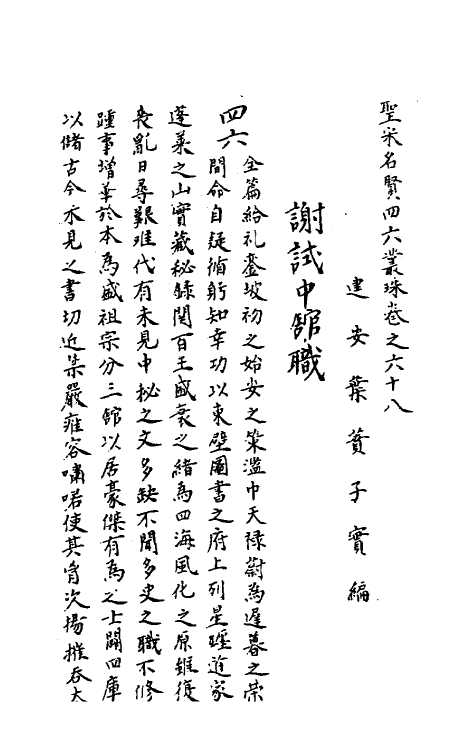 聖宋名賢四六叢珠卷之六十八
建安葉蕡子實編
謝試中館職
四六
全篇給札鑾坡初之始安之策濫中天祿蔚為遲暮之榮
聞命自疑循躬知幸功以東壁圖書之府上列星躔道家
蓬萊之山實藏秘錄関百王盛衰之緒為四海風化之原雖復
喪亂日尋艱难代有未見中秘之文多缺不聞多史之職不修
踵事增華於本為盛祖宗分三館以居豪傑有為之士闢四庫
以儲古今未見之書切近柴嚴雍容嘯啫使其胷次揚搉吞太